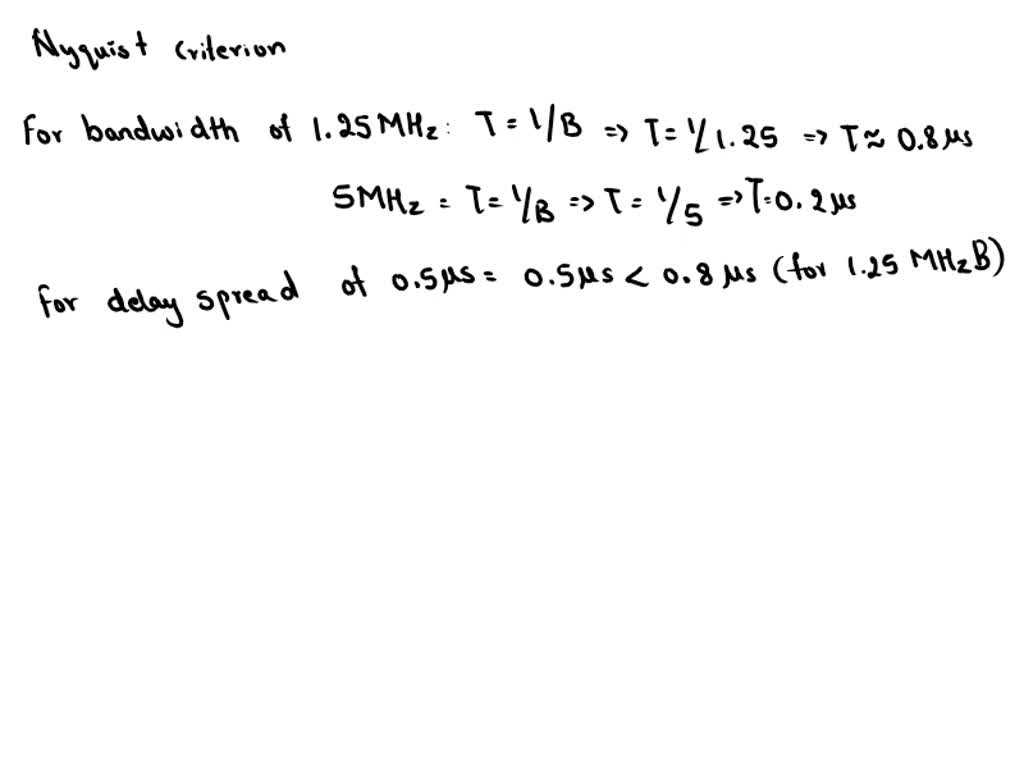 Nyquist criterion
For bandwidth of 1.25MHz: T = 1/B => T = 1/1.25 => T ≈ 0.8 μs
5MHz = T = 1/B => T = 1/5 => T = 0.2 μs
for delay spread of 0.5 μs = 0.5 μs < 0.8 μs (for 1.25 MHz B)